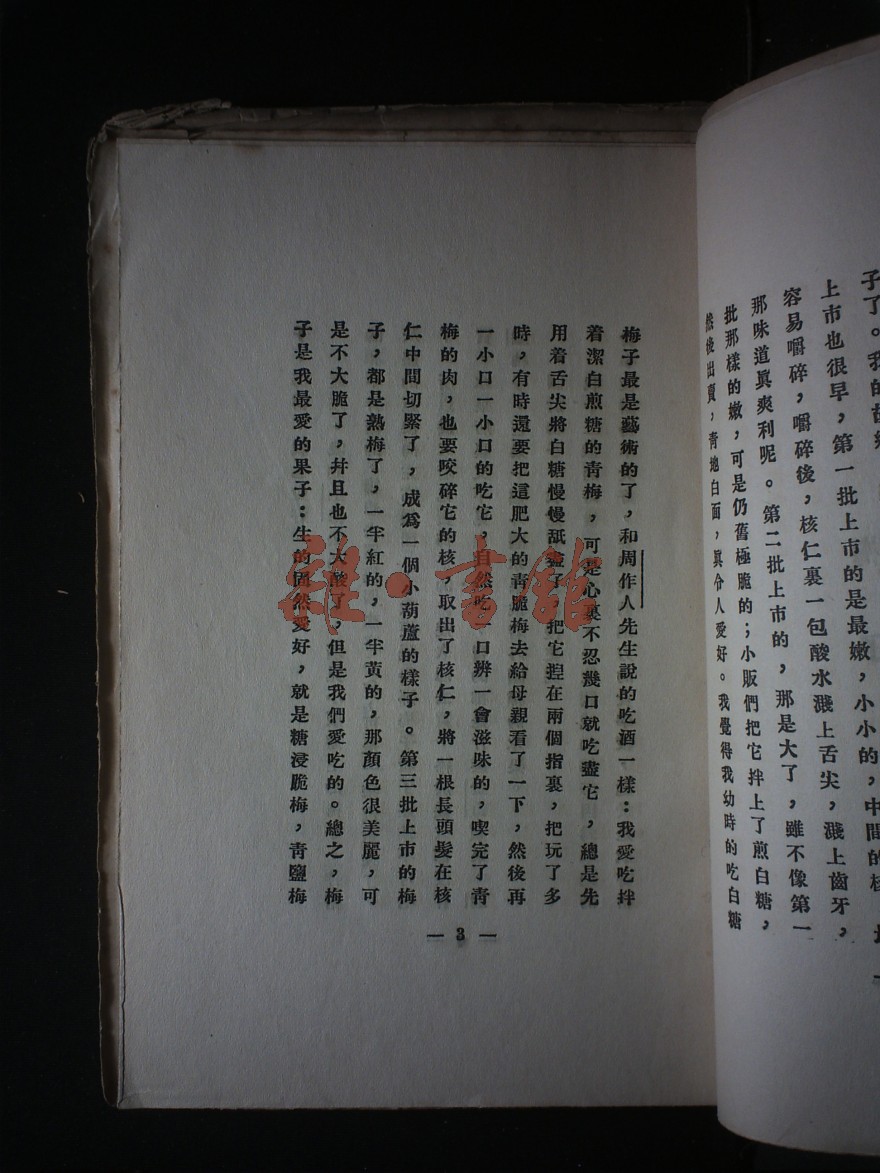 子了。我的故鄉
上市也很早，第一批上市的是最嫩，小小的，中間的核
容易嚼碎，嚼碎後，核仁裏一包酸水濺上舌尖，濺上齒牙，
那味道眞爽利呢。第二批上市的，那是大了，雖不像第一
批那樣的嫩，可是仍舊極脆的；小販們把它拌上了煎白糖，
然後出賣，靑地白面，眞令人愛好。我覺得我幼時的吃白糖
梅子最是藝術的了，和周作人先生說的吃酒一樣：我愛吃拌
着潔白煎糖的靑梅，可是心裏不忍幾口就吃盡它，總是先
用着舌尖將白糖慢慢舐盡了，把它揑在兩個指裏，把玩了多
時，有時還要把這肥大的靑脆梅去給母親看了一下，然後再
一小口一小口的吃它，自然吃一口辨一會滋味的，喫完了靑
梅的肉，也要咬碎它的核，取出了核仁，將一根長頭髮在核
仁中間切緊了，成爲一個小葫蘆的樣子。第三批上市的梅
子，都是熟梅了，一半紅的，一半黃的，那顏色很美麗，可
是不大脆了，幷且也不大酸了，但是我們愛吃的。總之，梅
子是我最愛的果子：生的固然愛好，就是糖浸脆梅，靑鹽梅
— 3 —
雜·書館